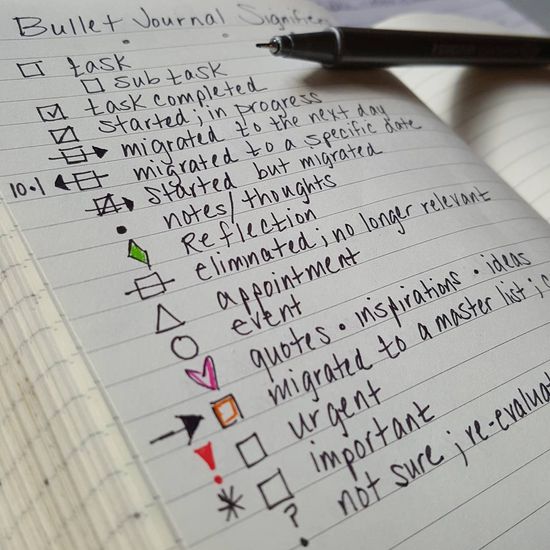 Bullet Journal Signifiers
task
sub task
task completed
started ; in progress
migrated to the next day
10.1 migrated to a specific date
started but migrated
notes/thoughts
Reflection
eliminated ; no longer relevant
appointment
event
quotes • inspirations • ideas
migrated to a master list ;
! urgent
* important
? not sure ; re-evaluat